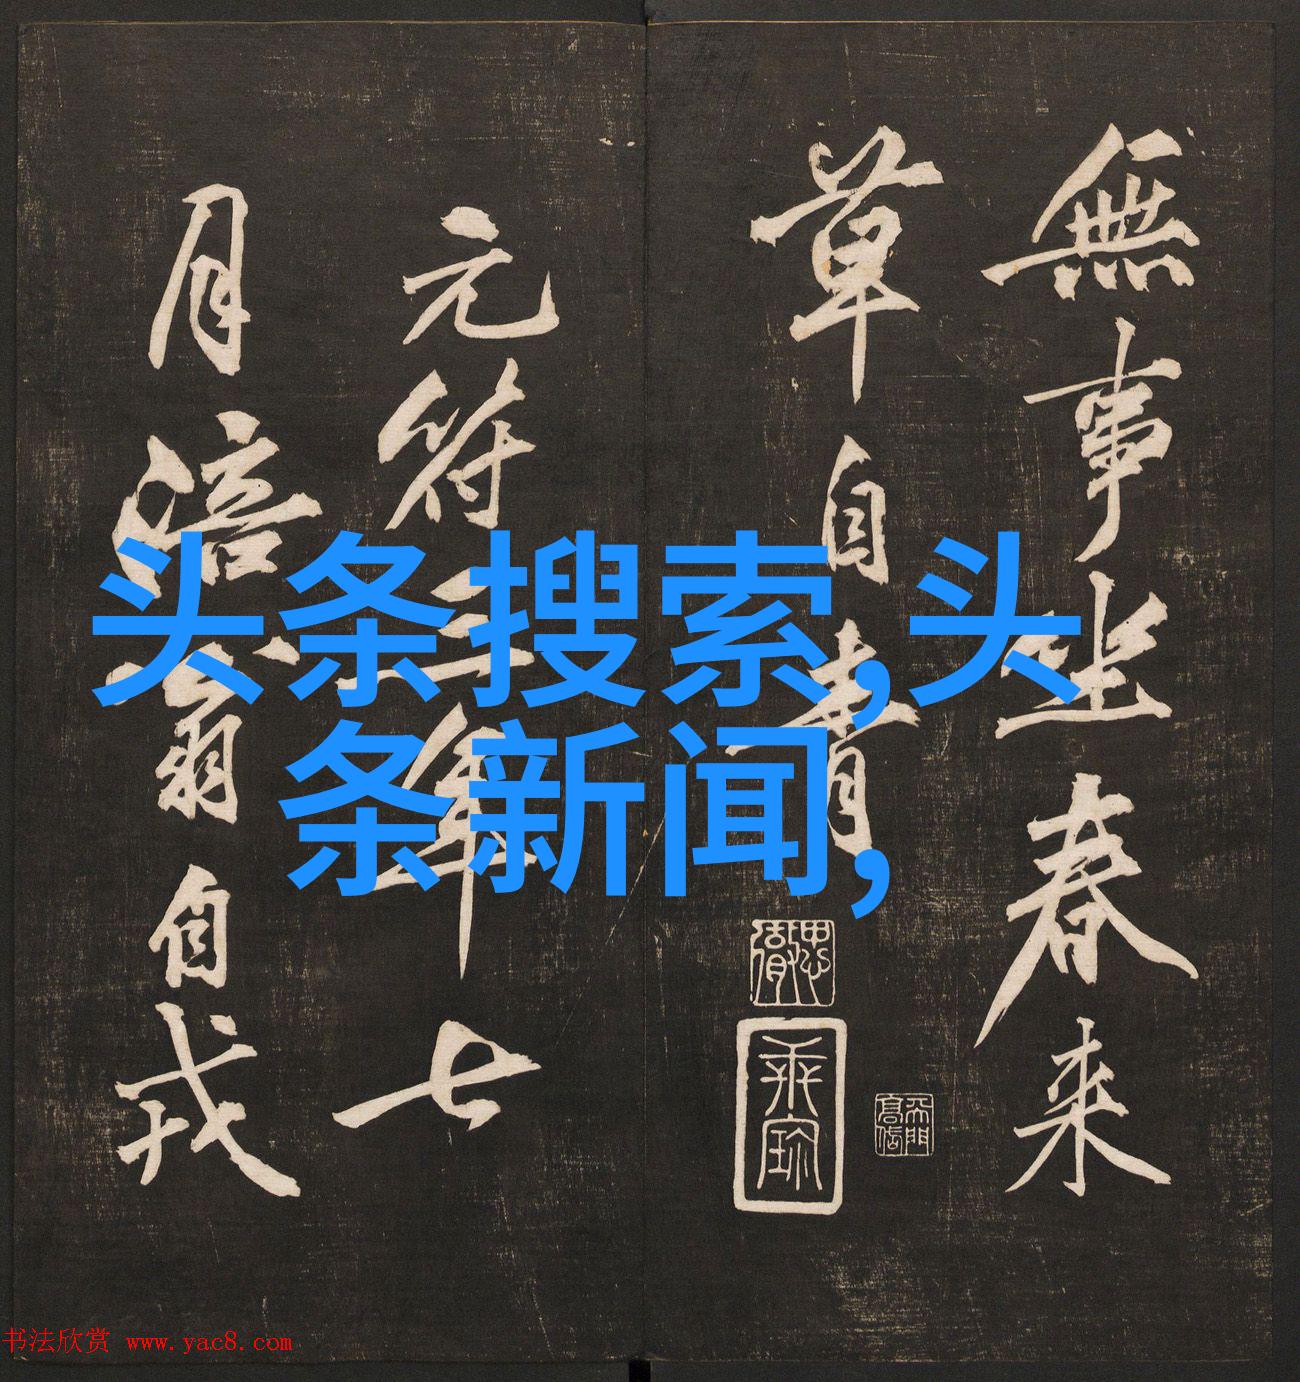 無事坐春来
草自青
元符三年七
月涪翁自戒
头条搜索,头
条新闻,
书法欣赏 www.yac8.com